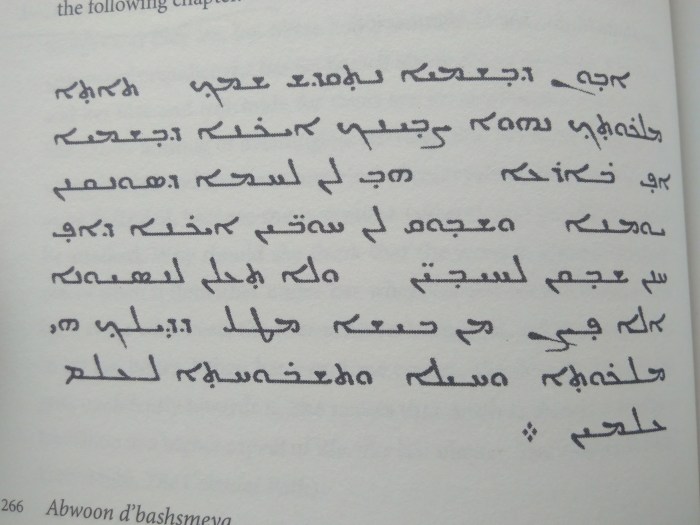 the following chapter.
ܐܒܘܢ ܕܒܫܡܝܐ ܢܬܩܕܫ ܫܡܟ ܬܐܬܐ
ܡܠܟܘܬܟ ܢܗܘܐ ܨܒܝܢܟ ܐܝܟܢܐ ܕܒܫܡܝܐ
ܐܦ ܒܐܪܥܐ ܗܒ ܠܢ ܠܚܡܐ ܕܣܘܢܩܢܢ
ܝܘܡܢܐ ܘܫܒܘܩ ܠܢ ܚܘܒ̈ܝܢ ܐܝܟܢܐ ܕܐܦ
ܚܢܢ ܫܒܩܢ ܠܚܝܒ̈ܝܢ ܘܠܐ ܬܥܠܢ ܠܢܣܝܘܢܐ
ܐܠܐ ܦܨܢ ܡܢ ܒܝܫܐ ܡܛܠ ܕܕܝܠܟ ܗܝ
ܡܠܟܘܬܐ ܘܚܝܠܐ ܘܬܫܒܘܚܬܐ ܠܥܠܡ
ܥܠܡܝܢ ܀
266 Abwoon d'bashmeya